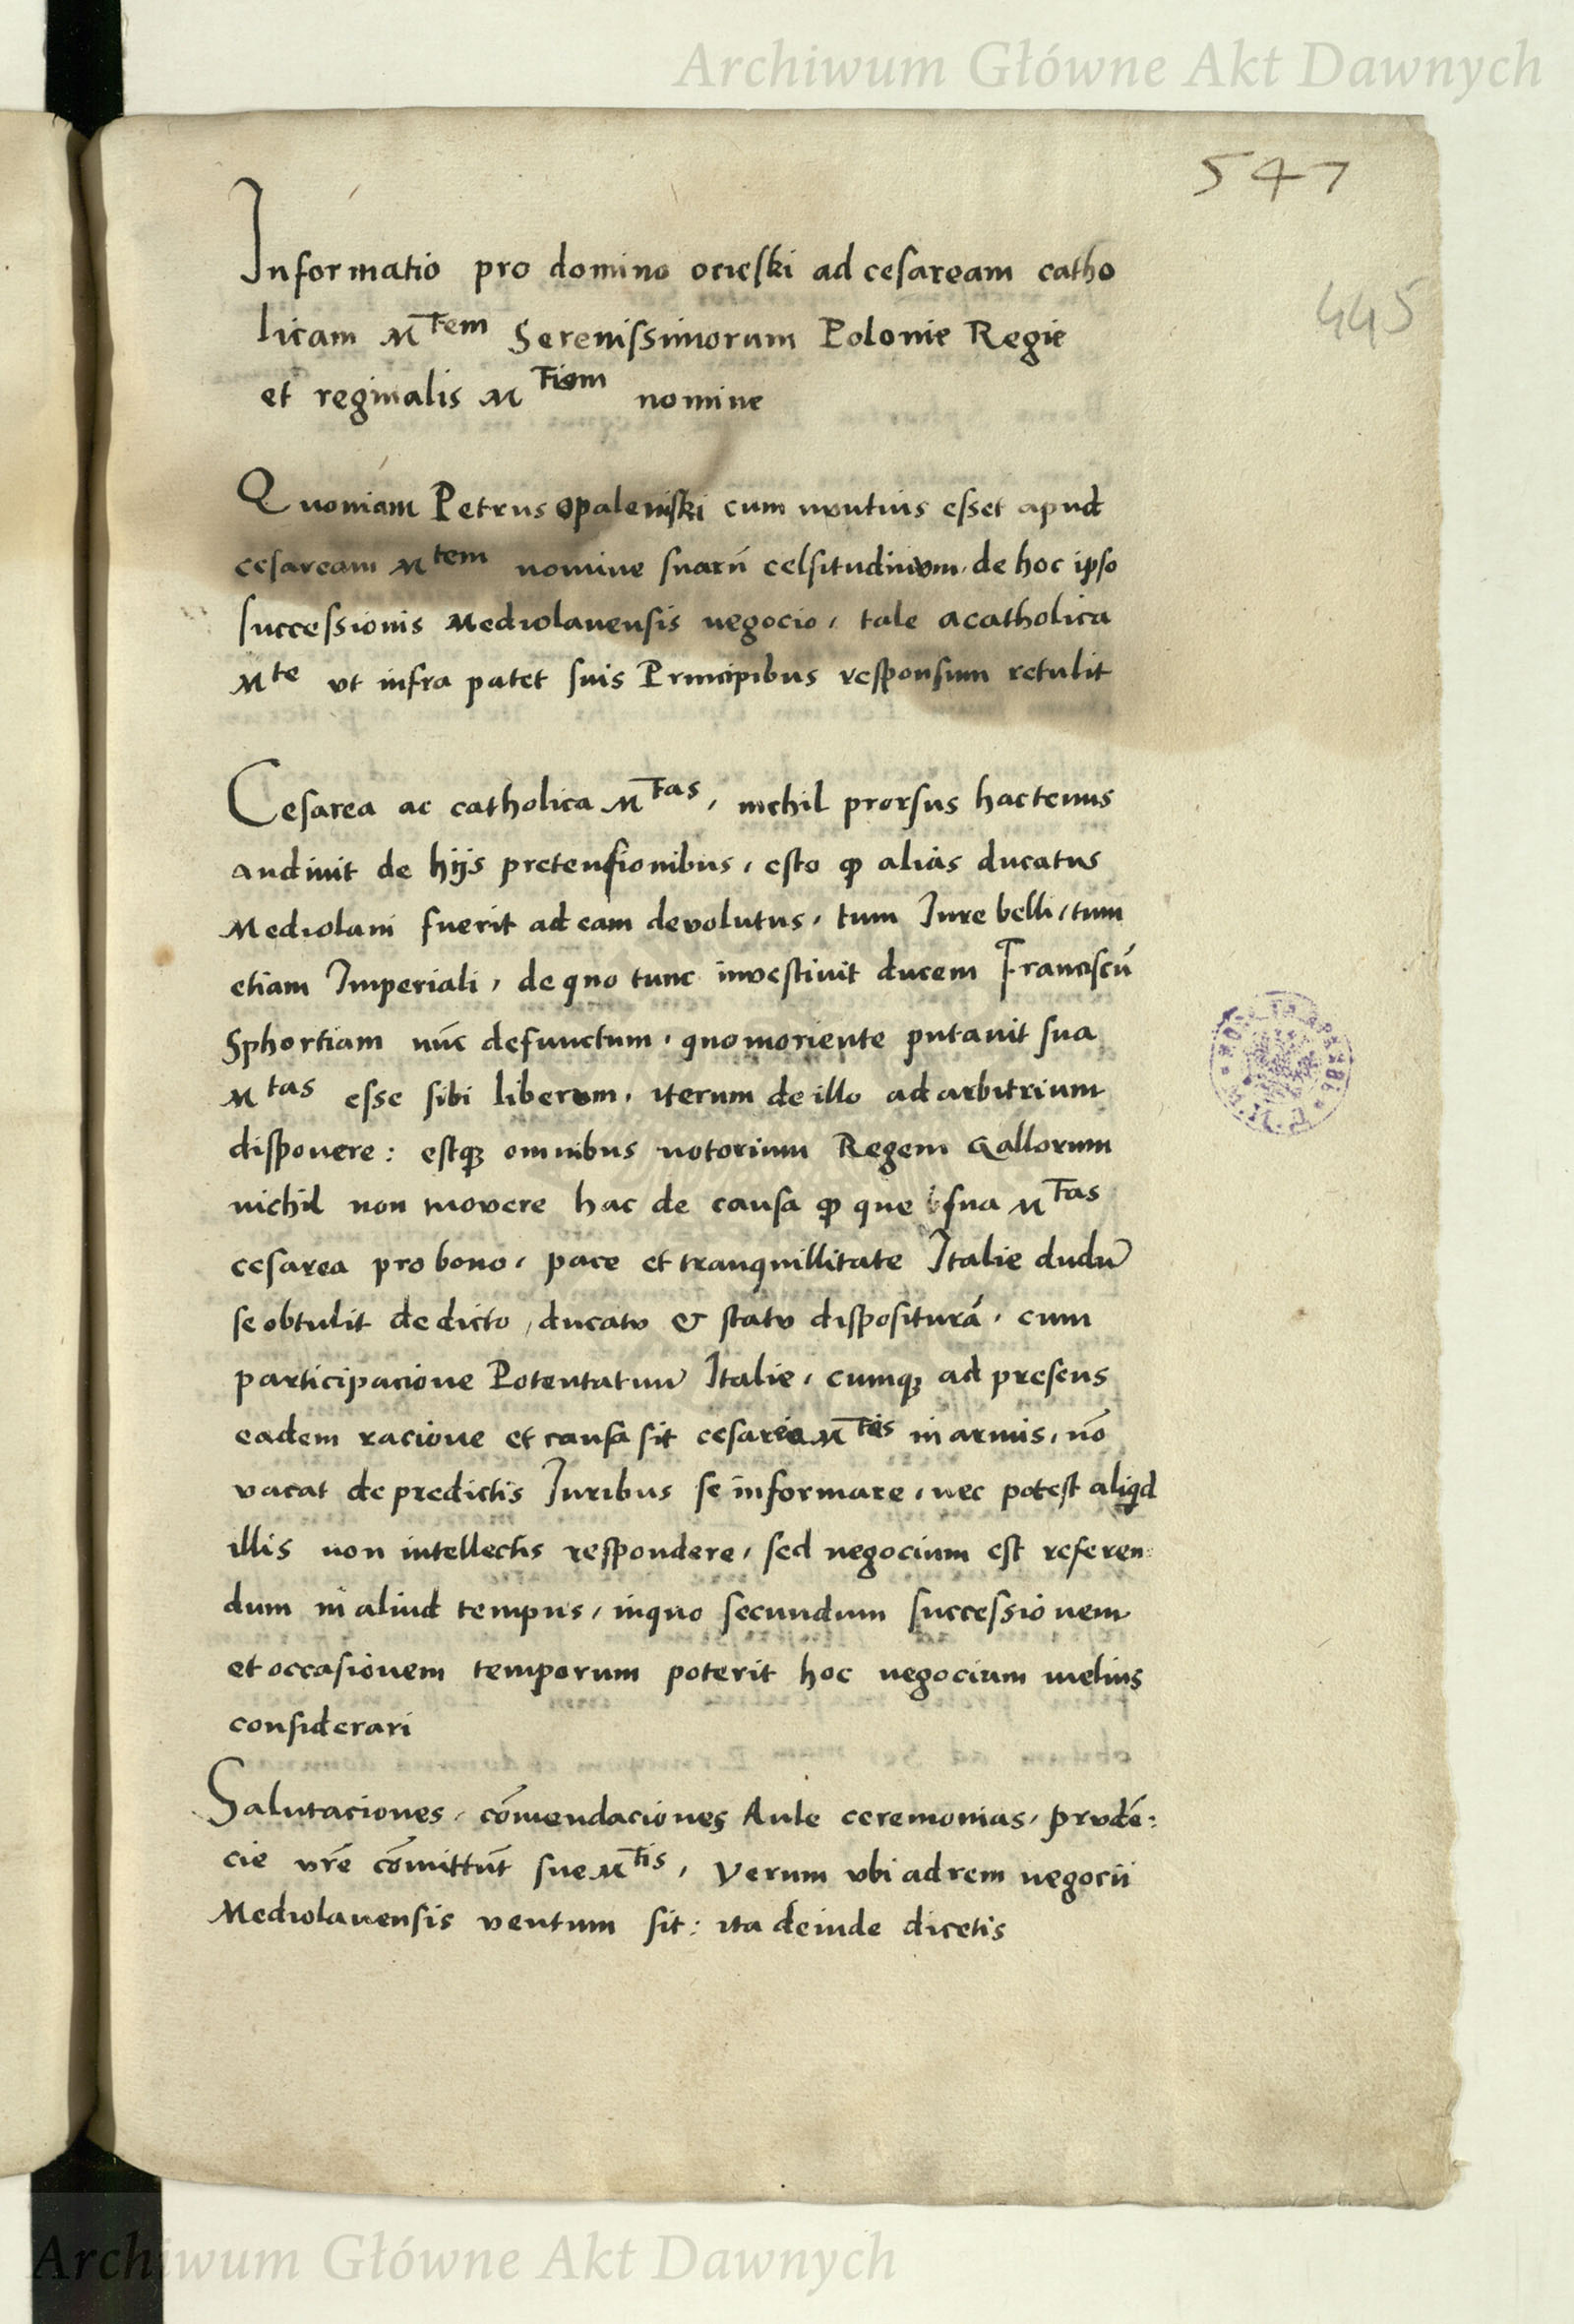 Archiwum Główne Akt Dawnych
547
445
Informatio pro domino ocieski ad cesaream catho
licam Mtem Serenissimorum Polonie Regie
et reginalis Mtiom nomine
Quoniam Petrus opalenski cum nuntius esset apud
cesaream Mtem nomine suarū celsitudinum, de hoc ipso
successionis Mediolanensis negocio, tale a catholica
Mte ut infra patet suis Principibus responsum retulit
Cesarea ac catholica Mtas, nichil prorsus hactenus
audiuit de hijs pretensionibus, esto ꝙ alias ducatus
Mediolani fuerit ad eam devolutus, tum Jure belli, tum
etiam Imperiali, de quo tunc investiuit ducem Franciscū
Sphortiam nūc defunctum, quo moriente putauit sua
Mtas esse sibi liberum, iterum de illo ad arbitrium
disponere: estqꝫ omnibus notorium Regem Gallorum
nichil non movere hac de causa ꝙ que sua Mtas
cesarea pro bono, pace et tranquillitate Italie dudū
se obtulit de dicto, ducatu & statu dispositurā, cum
participacione Potentatuū Italie, cumqꝫ ad presens
eadem racione et causa sit cesarea Mtas in armis, nō
vacat de predictis Juribus se informare, nec potest aliqd
illis non intellectis respondere, sed negocium est referen:
dum in aliud tempus, in quo secundum successionem
et occasionem temporum poterit hoc negocium melius
considerari
Salutaciones, cōmendaciones Aule ceremonias, prudē:
cie vrē cōmittūt sue Mtis, Verum ubi ad rem negocii
Mediolanensis ventum sit: ita deinde dicetis
Archiwum Główne Akt Dawnych